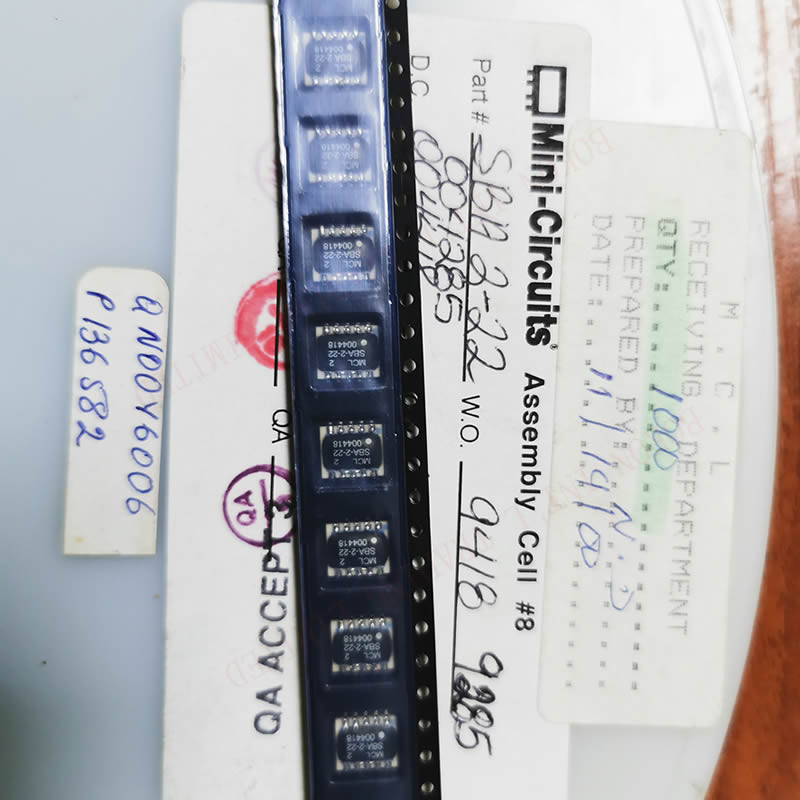 QN00Y6006
P136582
Mini-Circuits Assembly Cell #8
Part # SBA 2-22 W.O. 9418 9285
004285
D.C. 004418
QA
QA ACCEPT 3 QA
M.C.L
RECEIVING DEPARTMENT
QTY: 1000
PREPARED BY: N.D
DATE: 11/14/00
MCL 2
SBA-2-22
004418
MCL 2
SBA-2-22
004418
MCL 2
SBA-2-22
004418
MCL 2
SBA-2-22
004418
MCL 2
SBA-2-22
004418
MCL 2
SBA-2-22
004418
MCL 2
SBA-2-22
004418
MCL 2
SBA-2-22
004418